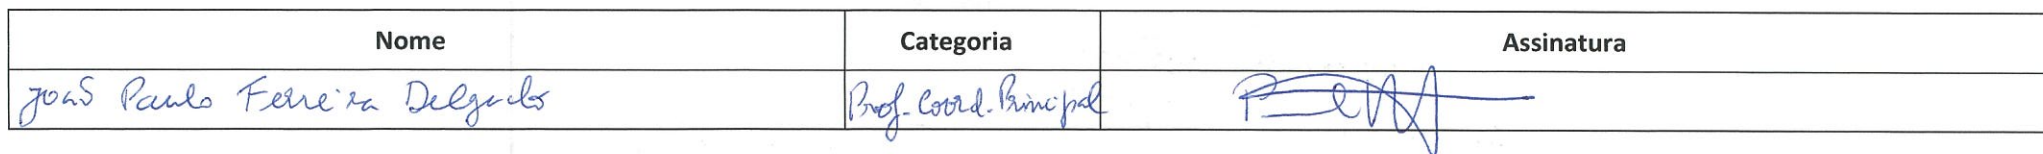 Nome Categoria Assinatura
João Paulo Ferreira Delgado Prof. Coord. Principal